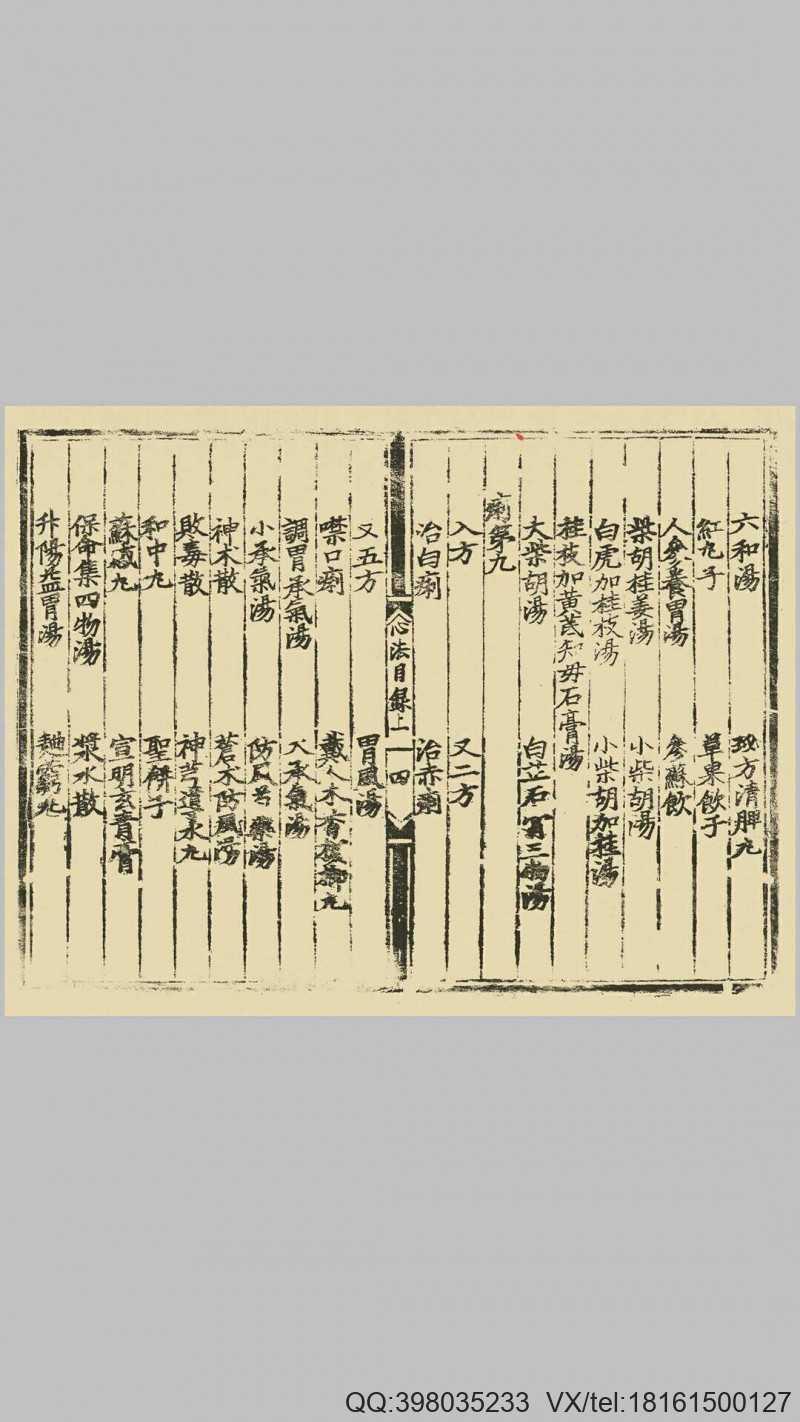 六和湯　　局方清脾丸
紅丸子　　草果飲子
人參養胃湯　　參蘇飲
柴胡桂姜湯　　小柴胡湯
白虎加桂枝湯　　小柴胡加桂湯
桂枝加黃芪知母石膏湯
大柴胡湯　　白芷石膏三物湯
痢第九
入方　　又二方
治白痢　　治赤痢
心法目錄上　四
又五方　　胃風湯
噤口痢　　戴人木香檳榔丸
調胃承氣湯　　大承氣湯
小承氣湯　　防風芍藥湯
神朮散　　蒼朮防風湯
敗毒散　　神芎導水丸
和中丸　　聖餅子
蘇感丸　　宣明玄青膏
保命集四物湯　　漿水散
升陽益胃湯
QQ:398035233 VX/tel:18161500127